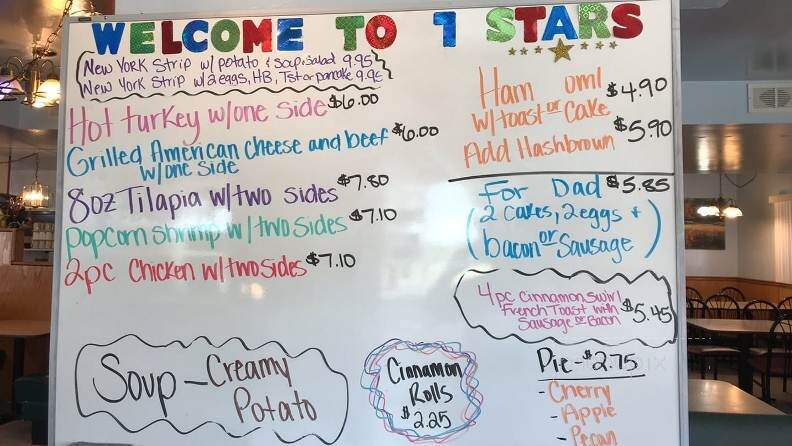 WELCOME TO 7 STARS
New York Strip w/ potato & soup or salad 9.95
New York Strip w/ 2 eggs, HB, Tst or pancake 9.95
Hot turkey w/one side $6.00
Grilled American cheese and beef $6.00
w/one side
8oz Tilapia w/two sides $7.80
popcorn shrimp w/two sides $7.10
2pc Chicken w/two sides $7.10
Soup – Creamy
Potato
Cinnamon
Rolls
$2.25
Ham oml $4.90
w/toast or Cake
Add Hashbrown $5.90
For Dad $5.85
(2 cakes, 2 eggs +
bacon or Sausage)
4pc Cinnamon Swirl
French Toast with $5.45
Sausage or Bacon
Pie - $2.75
- Cherry
- Apple
- Pecan